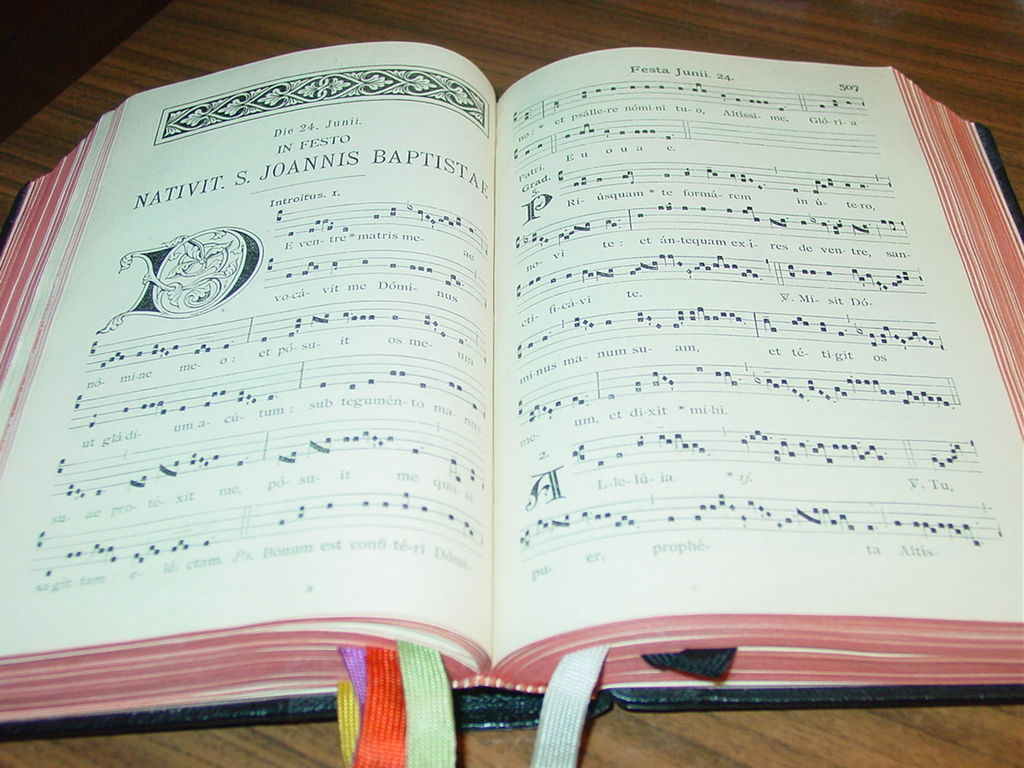 Die 24. Junii.
IN FESTO
NATIVIT. S. JOANNIS BAPTISTAE
Introitus. 1.
D E ven- tre * matris me- ae
vo-cá- vit me Dómi- nus
nó- mi-ne me- o: et pó-su- it os me- um
ut glá-di- um a- cú- tum: sub tegumén-to ma- nus
su- ae pro- té- xit me, pó- su- it me qua-si
sagít-tam e- lé- ctam. Ps. Bonum est confi-té-ri Dómi-
Festa Junii. 24.
507
no: * et psálle-re nómi-ni tu-o, Altíssi- me, Gló-ri-a
Patri. E u o u a e.
Grad. 5.
P Ri- úsquam * te formá-rem in ú- te-ro,
no- vi te: et ántequam ex-í- res de ventre, san-
cti- fi-cá-vi te. ℣. Mi- sit Dó-
mi-nus ma- num su- am, et té- ti-git os
me- um, et di-xit * mi-hi.
2.
A L-le-lú- ia. * ij. ℣. Tu,
pu- er, prophé- ta Altís-